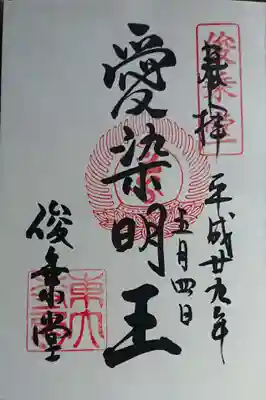 俊乗堂
奉拝
平成廿九年
五月四日
愛染明王
俊乗堂
東大